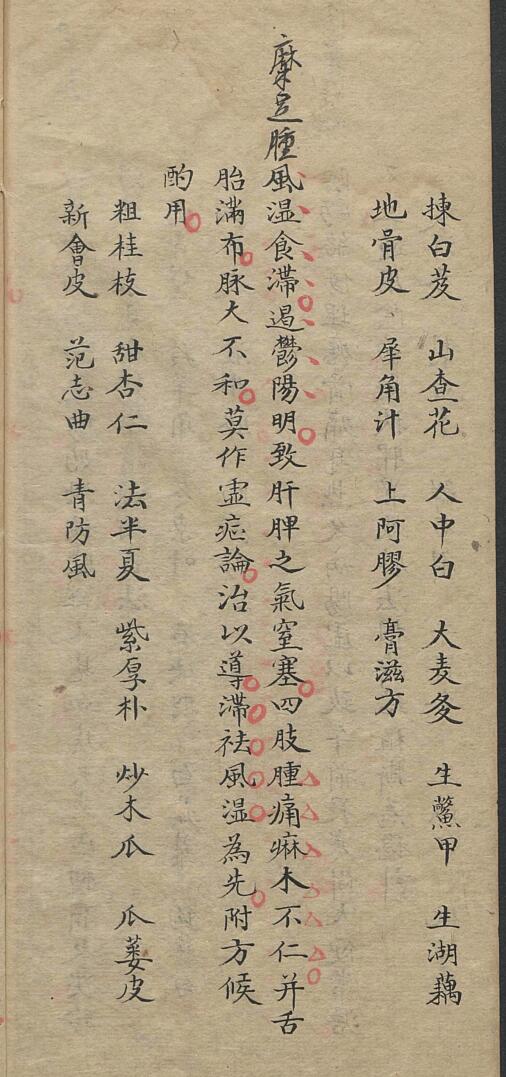 揀白芨 山查花 人中白 大麦冬 生鱉甲 生湖藕
地骨皮 犀角汁 上阿膠 膏滋方
足腫風湿食滯遏鬱陽明致肝脾之氣窒塞四肢腫痛麻木不仁并舌
胎滿布脉大不和莫作虛症論治以導滯袪風湿為先附方候
酌用
粗桂枝 甜杏仁 法半夏 紫厚朴 炒木瓜 瓜蒌皮
新會皮 范志曲 青防風